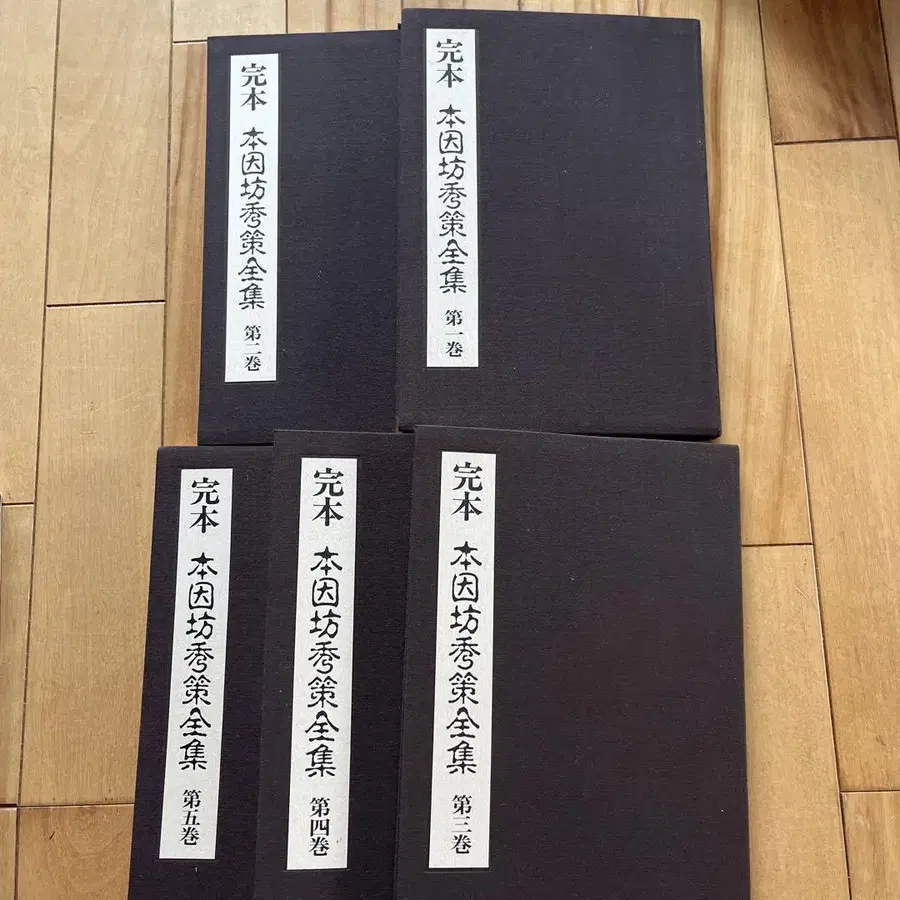 完本 本因坊秀策全集 第一巻
完本 本因坊秀策全集 第二巻
完本 本因坊秀策全集 第三巻
完本 本因坊秀策全集 第四巻
完本 本因坊秀策全集 第五巻